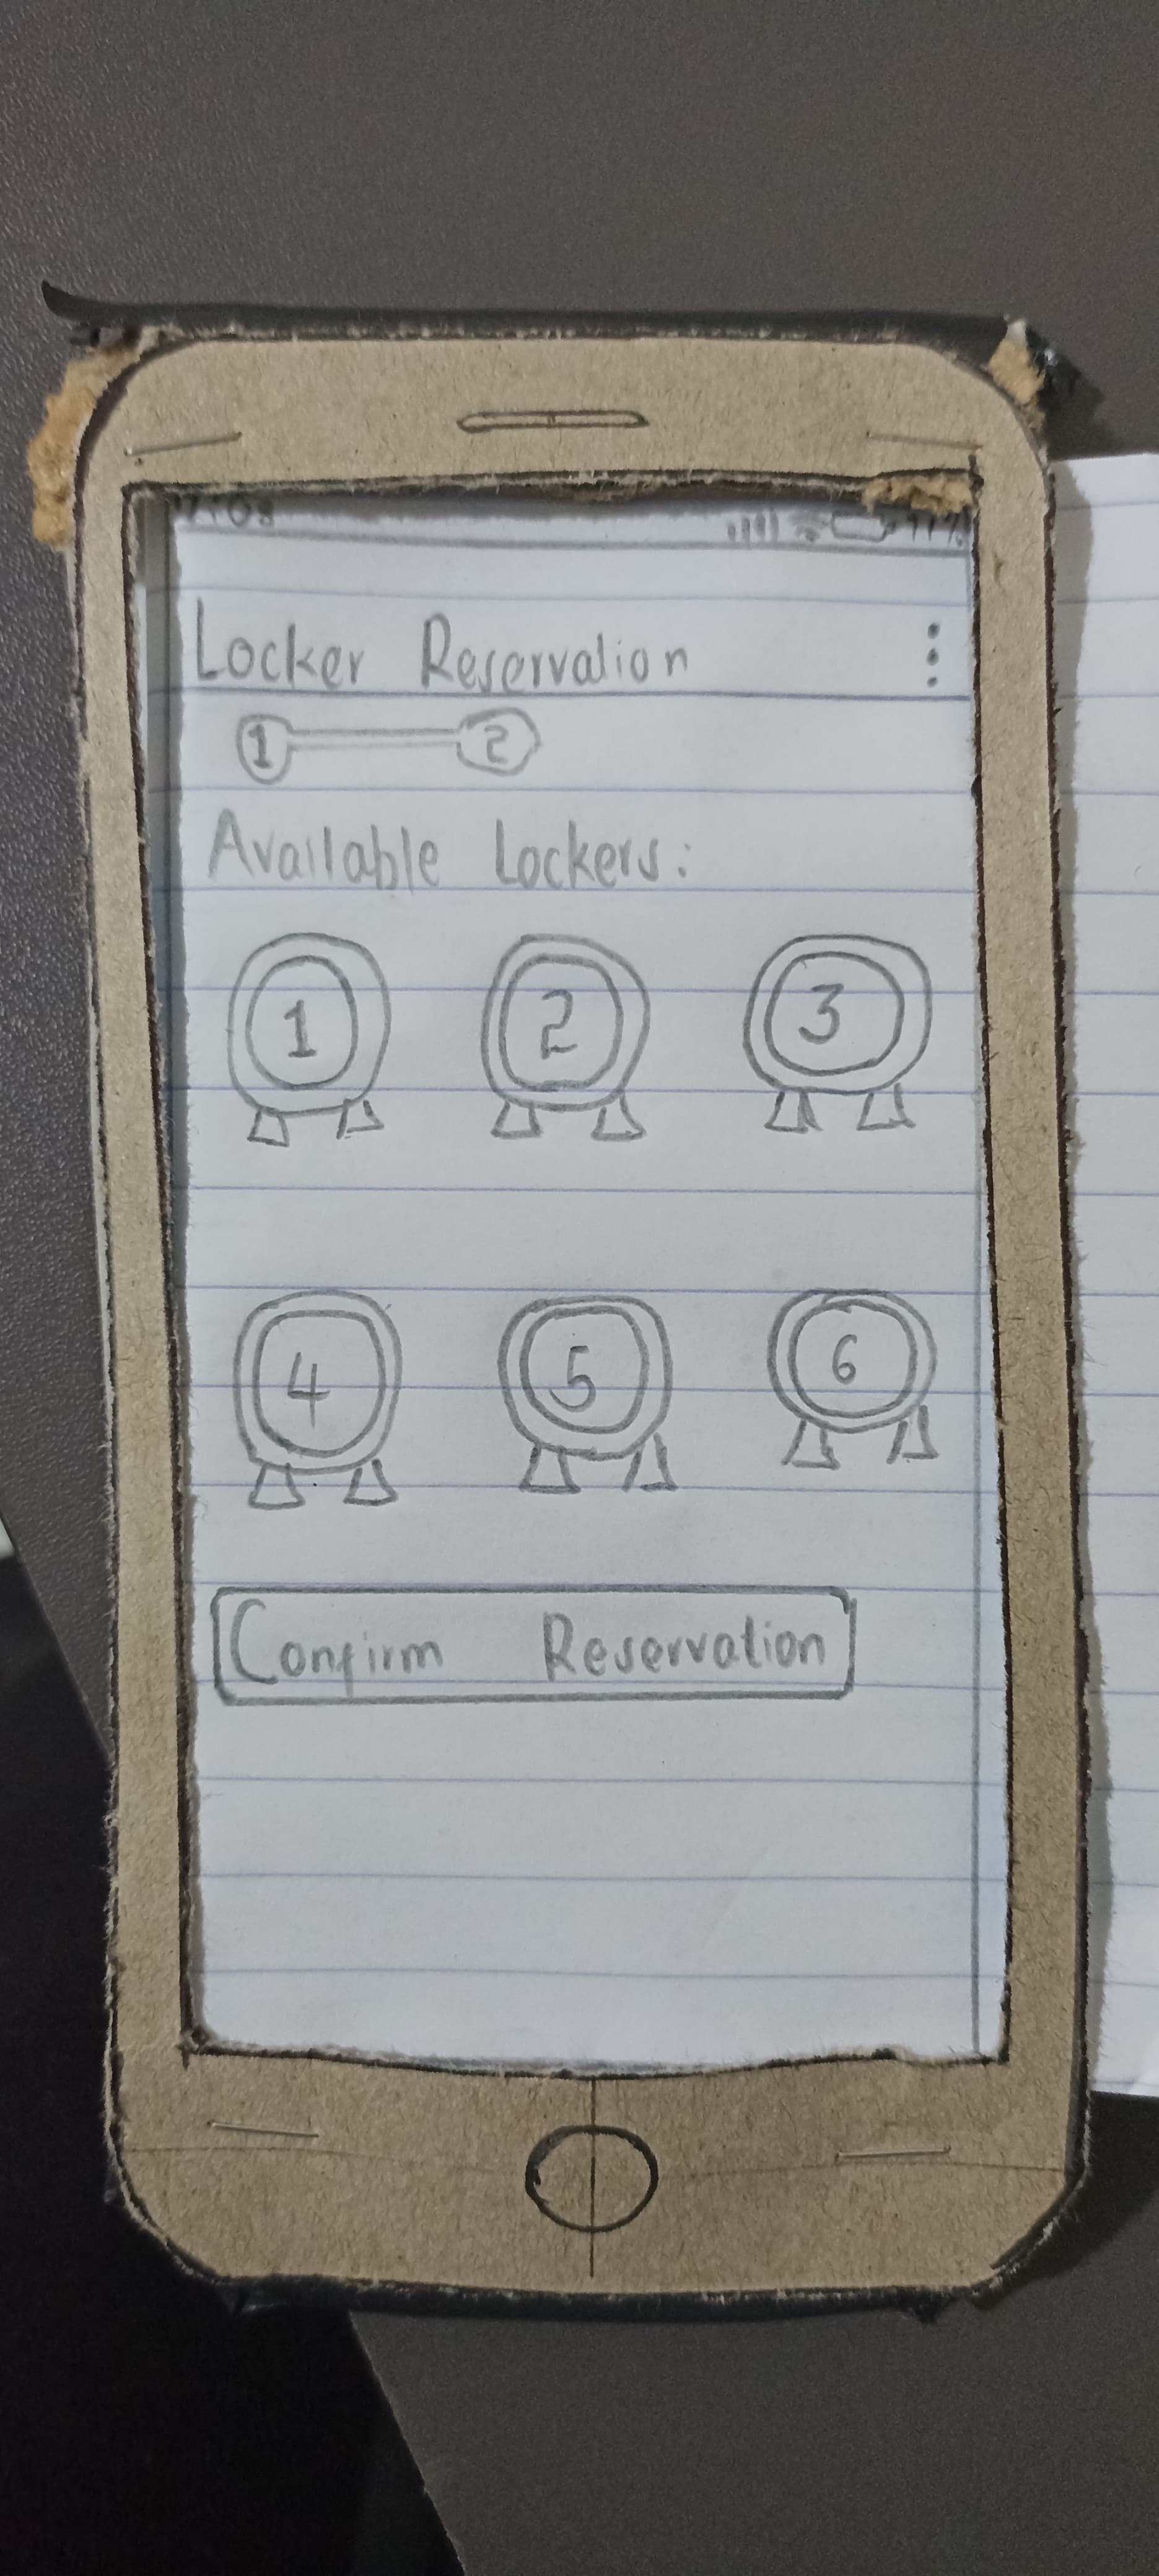 Locker Reservation
1 2
Available Lockers:
1 2 3
4 5 6
Confirm Reservation